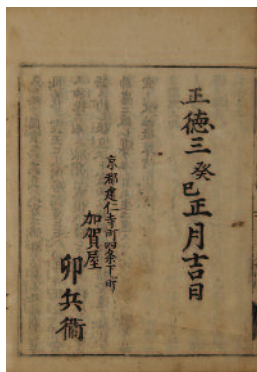 正徳三癸巳正月吉日
京都建仁寺町四条下町
加賀屋
卯兵衛